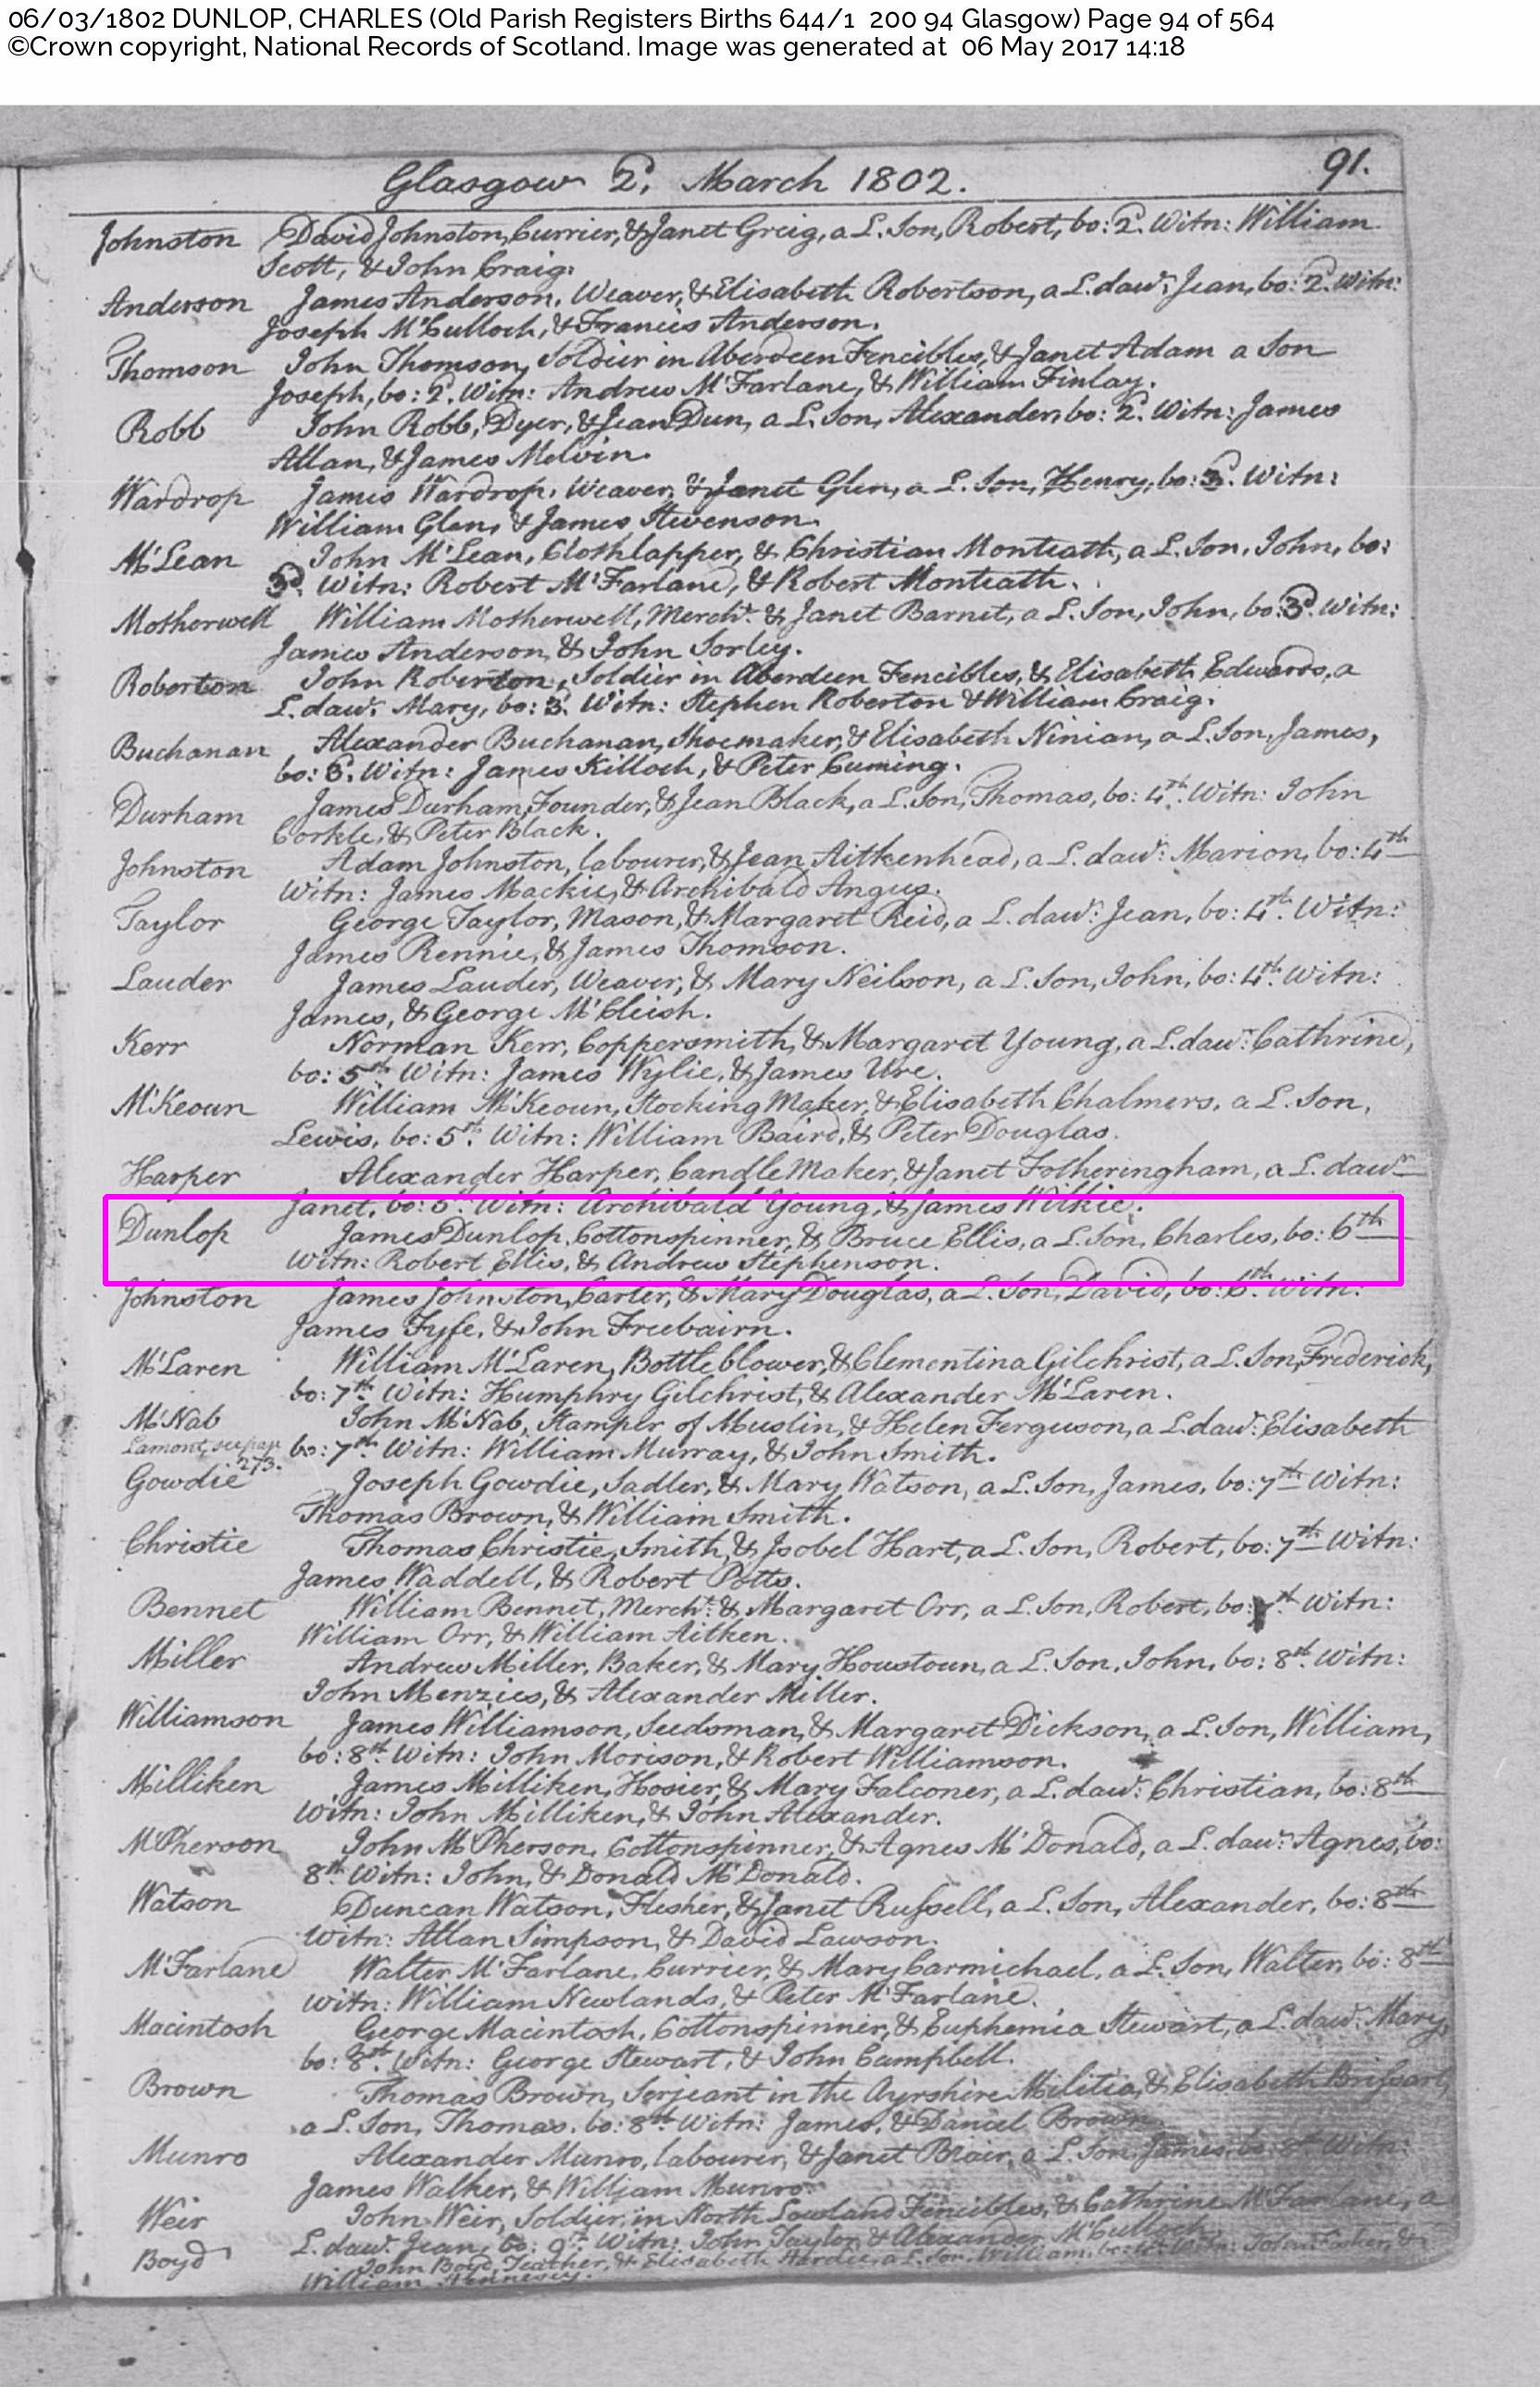 06/03/1802 DUNLOP, CHARLES (Old Parish Registers Births 644/1 200 94 Glasgow) Page 94 of 564
©Crown copyright, National Records of Scotland. Image was generated at 06 May 2017 14:18
Glasgow 2d. March 1802. 91.
Johnston David Johnston, Currier, & Janet Greig, a L. Son, Robert, bo: 2d. Witn: William
Scott, & John Craig.
Anderson James Anderson, Weaver, & Elisabeth Robertson, a L. dawr: Jean, bo: 2d. Witn:
Joseph McCulloch, & Francis Anderson.
Thomson John Thomson, Soldier in Aberdeen Fencibles, & Janet Adam a Son
Joseph, bo: 2d. Witn: Andrew McFarlane, & William Finlay.
Robb John Robb, Dyer, & Jean Dun, a L. Son, Alexander, bo: 2d. Witn: James
Allan, & James Melvin.
Wardrop James Wardrop, Weaver, & Janet Glen, a L. Son, Henry, bo: 3d. Witn:
William Glen, & James Stevenson.
McLean John McLean, Clothlapper, & Christian Monteath, a L. Son, John, bo:
3d. Witn: Robert McFarland, & Robert Monteath.
Motherwell William Motherwell, Mercht. & Janet Barnet, a L. Son, John, bo: 3d. Witn:
James Anderson, & John Sorley.
Roberton John Roberton, Soldier in Aberdeen Fencibles, & Elisabeth Edwards, a
L. dawr: Mary, bo: 3d. Witn: Stephen Roberton & William Craig.
Buchanan Alexander Buchanan, Shoemaker, & Elisabeth Ninian, a L. Son, James,
bo: Witn: James Killoch, & Peter Cuming.
Durham James Durham, Founder, & Jean Black, a L. Son, Thomas, bo: 4th. Witn: John
Corkle, & Peter Black.
Johnston Adam Johnston, labourer, & Jean Aitkenhead, a L. dawr: Marion, bo: 4th
Witn: James Mackie, & Archibald Angus.
Taylor George Taylor, Mason, & Margaret Reid, a L. dawr: Jean, bo: 4th. Witn:
James Rennie, & James Thomson.
Lauder James Lauder, Weaver, & Mary Neilson, a L. Son, John, bo: 4th. Witn:
James, & George McCleish.
Kerr Norman Kerr, Coppersmith, & Margaret Young, a L. dawr: Cathrine,
bo: 5th Witn: James Wylie, & James Ure.
McKeoun William McKeoun, Stocking Maker, & Elisabeth Chalmers, a L. Son,
Lewis, bo: 5th. Witn: William Baird, & Peter Douglas.
Harper Alexander Harper, Candle Maker, & Janet Fotheringham, a L. dawr
Janet, bo: 5th. Witn: Archibald Young, & James Wilkie.
Dunlop James Dunlop, Cottonspinner, & Bruce Ellis, a L. Son, Charles, bo: 6th
Witn: Robert Ellis, & Andrew Stephenson.
Johnston James Johnston, Carter, & Mary Douglas, a L. Son, David, bo: 6th. Witn:
James Fyfe, & John Freebairn.
McLaren William McLaren, Bottleblower, & Clementina Gilchrist, a L. Son, Frederick,
bo: 7th Witn: Humphry Gilchrist, & Alexander McLaren.
McNab John McNab, Stamper of Muslin, & Helen Ferguson, a L. dawr: Elisabeth
Lamont, see page 273. bo: 7th Witn: William Murray, & John Smith.
Gowdie Joseph Gowdie, Sadler, & Mary Watson, a L. Son, James, bo: 7th Witn:
Thomas Brown, & William Smith.
Christie Thomas Christie, Smith, & Isobel Hart, a L. Son, Robert, bo: 7th Witn:
James Waddell, & Robert Potts.
Bennet William Bennet, Mercht: & Margaret Orr, a L. Son, Robert, bo: Witn:
William Orr, & William Aitken.
Miller Andrew Miller, Baker, & Mary Houstoun, a L. Son, John, bo: 8th. Witn:
John Menzies, & Alexander Miller.
Williamson James Williamson, Seedsman, & Margaret Dickson, a L. Son, William,
bo: 8th. Witn: John Morison, & Robert Williamson.
Milliken James Milliken, Hosier, & Mary Falconer, a L. dawr: Christian, bo: 8th
Witn: John Milliken, & John Alexander.
McPherson John McPherson, Cottonspinner, & Agnes McDonald, a L. dawr: Agnes, bo:
8th. Witn: John, & Donald McDonald.
Watson Duncan Watson, Flesher, & Janet Russell, a L. Son, Alexander, bo: 8th
Witn: Allan Simpson, & David Lawson.
McFarlane Walter McFarlane, Currier, & Mary Carmichael, a L. Son, Walter, bo: 8th
Witn: William Newlands, & Peter McFarlane.
Macintosh George Macintosh, Cottonspinner, & Euphemia Stewart, a L. dawr: Mary,
bo: 8th. Witn: George Stewart, & John Campbell.
Brown Thomas Brown, Serjeant in the Ayrshire Militia, & Elisabeth
a L. Son, Thomas, bo: 8th Witn: James, & Daniel Brown.
Munro Alexander Munro, labourer, & Janet Blair, a L. Son James, bo: 8th Witn:
James Walker, & William Munro.
Weir John Weir, Soldier in North Lowland Fencibles, & Cathrine McFarlane, a
L. dawr: Jean, bo: 9th. Witn: John Taylor & Alexander McCulloch.
Boyd John Boyd, Teacher, & Elisabeth Hardie, a L. Son, William, bo: Witn: John &
William